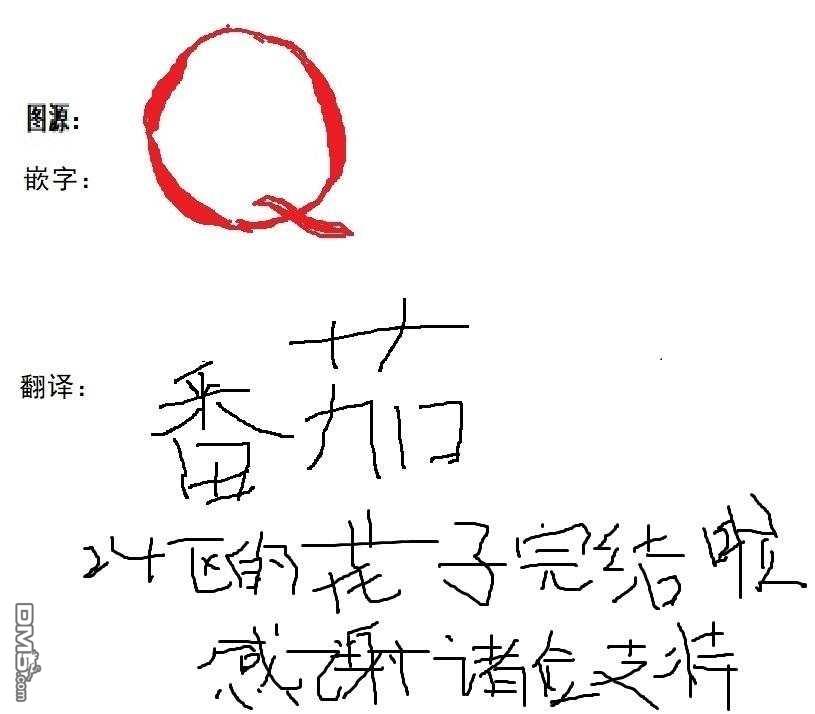 图源：
嵌字：
Q
翻译：
番茄
24区的花子完结啦
感谢诸位支持
DM5.com